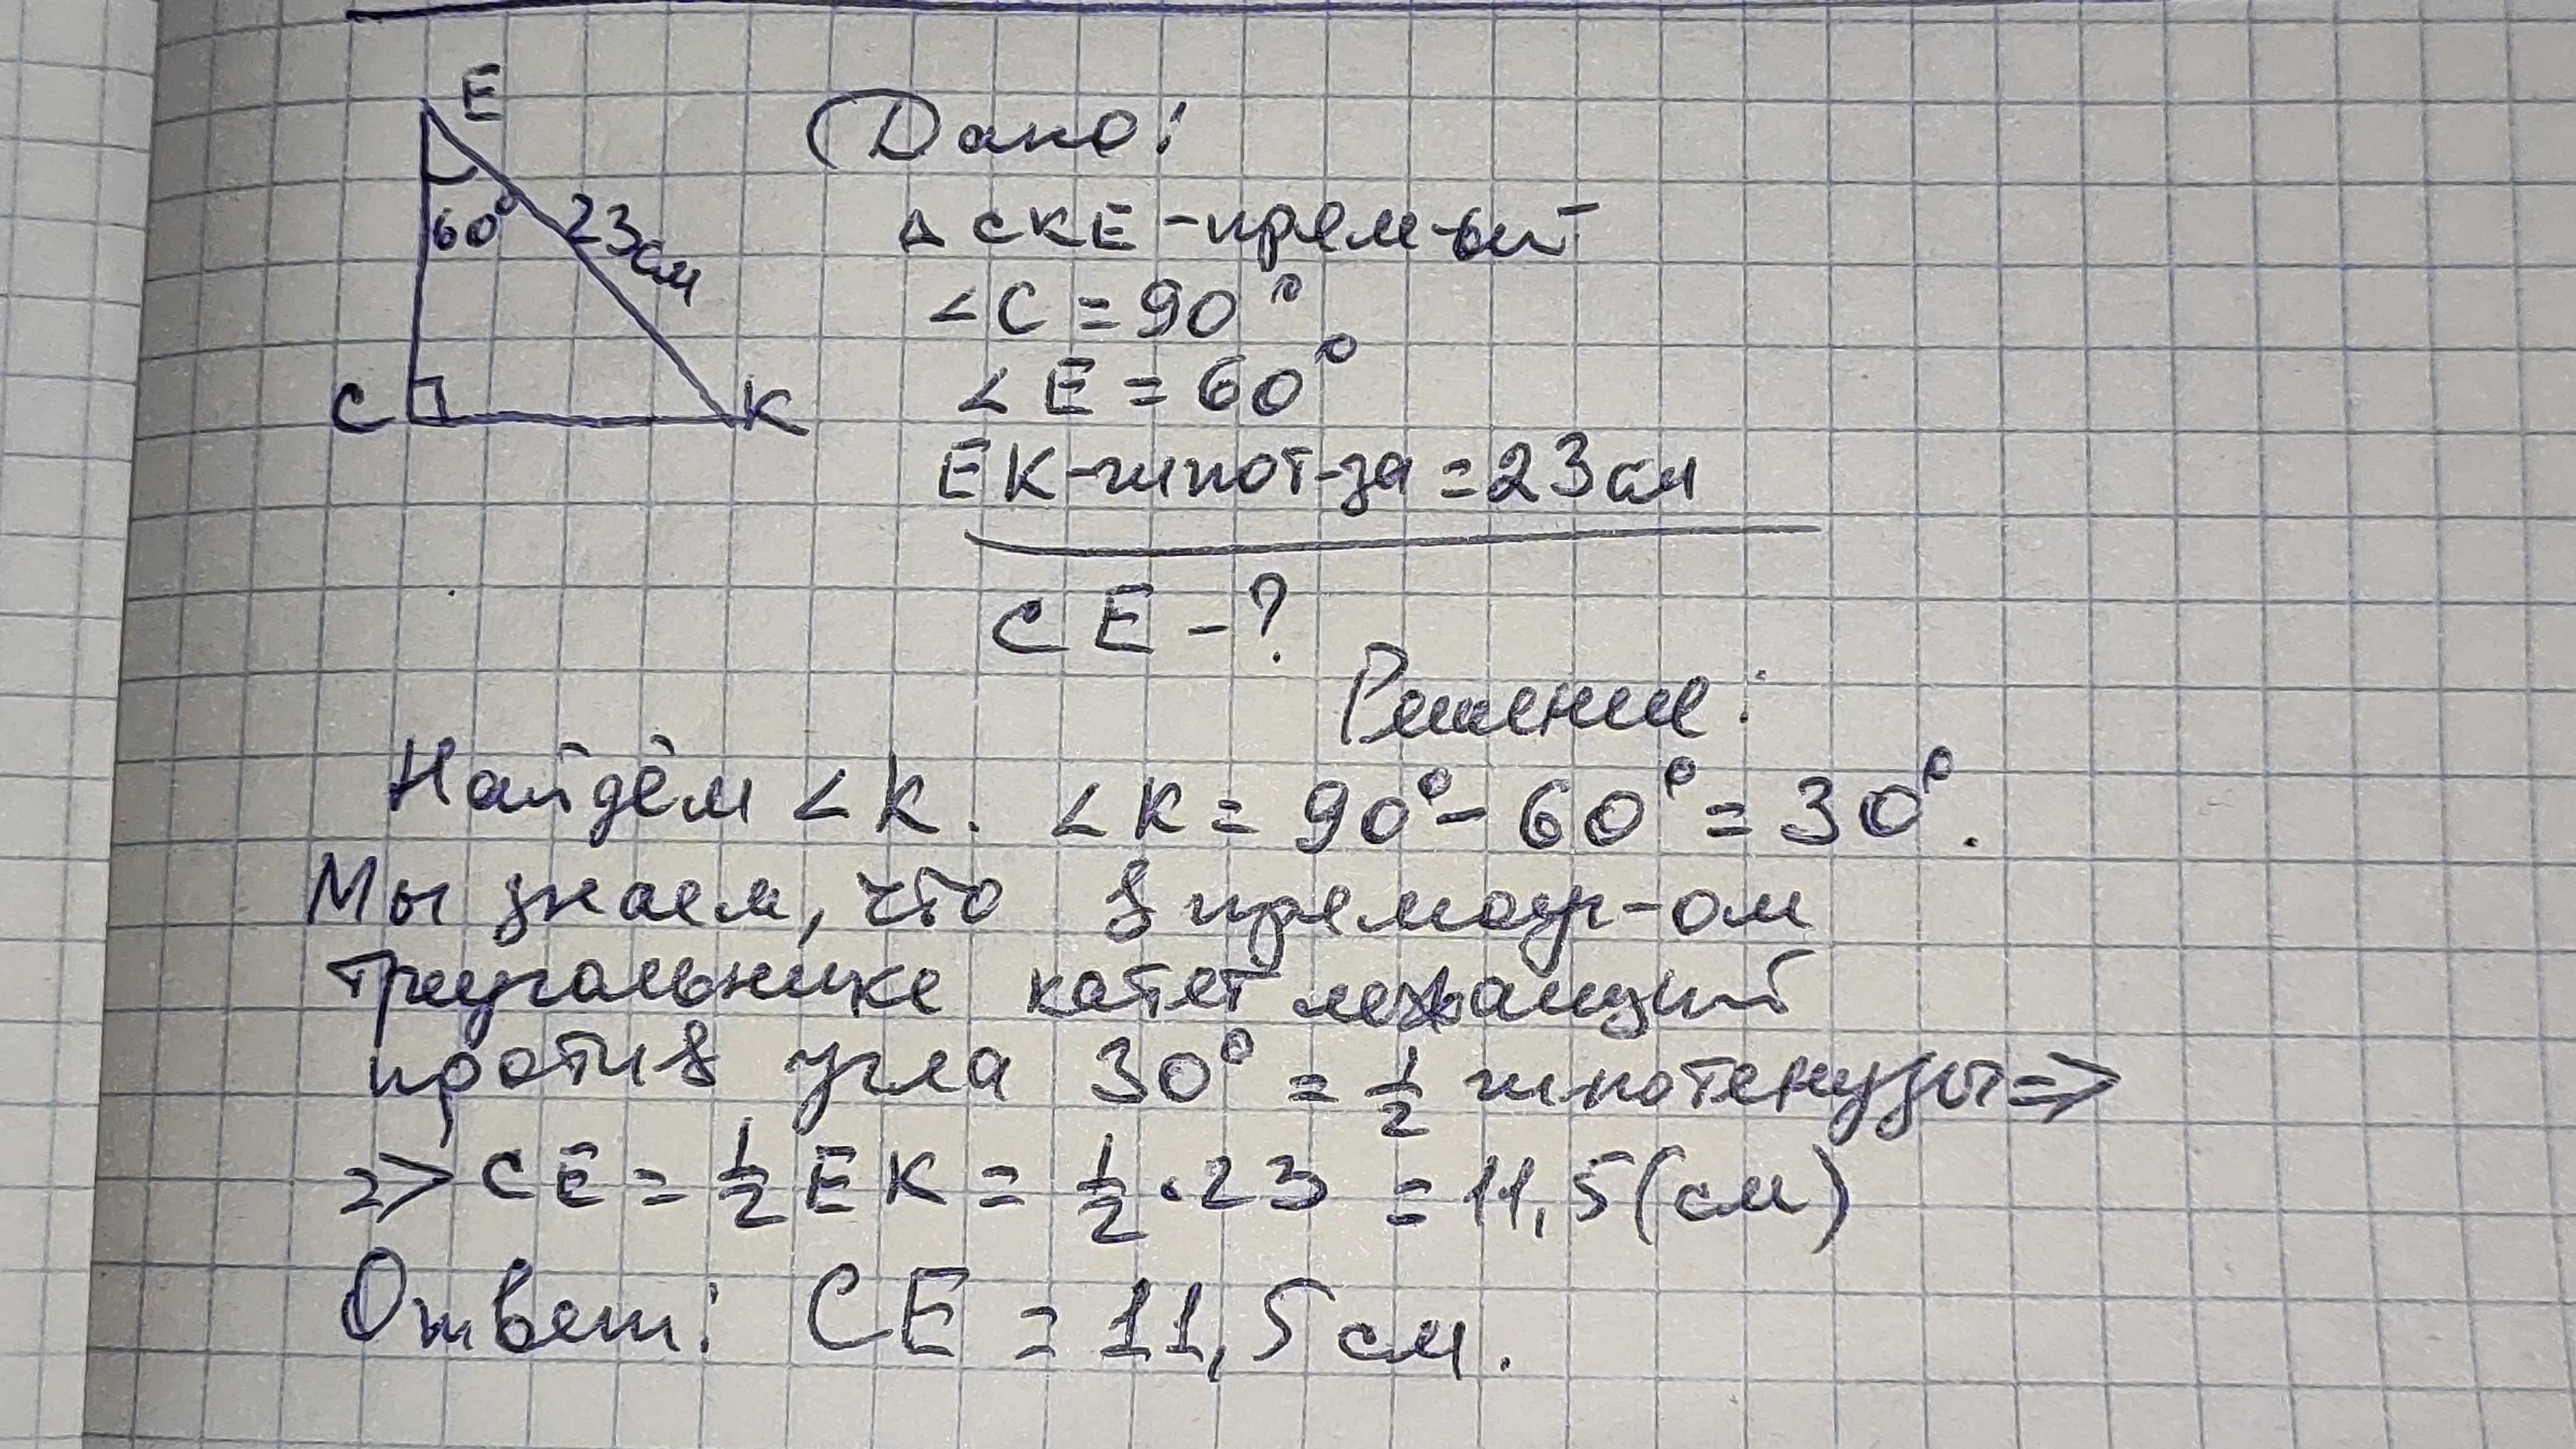 E
60°
23см
C
K
Дано:
△ CKE - прям-ый
∠C = 90°
∠E = 60°
EK - гипот-за = 23 см
CE - ?
Решение:
Найдём ∠K. ∠K = 90° - 60° = 30°.
Мы знаем, что в прямоуг-ом
треугольнике катет лежащий
против угла 30° = 1/2 гипотенузы =>
=> CE = 1/2 EK = 1/2 · 23 = 11,5 (см)
Ответ: CE = 11,5 см.